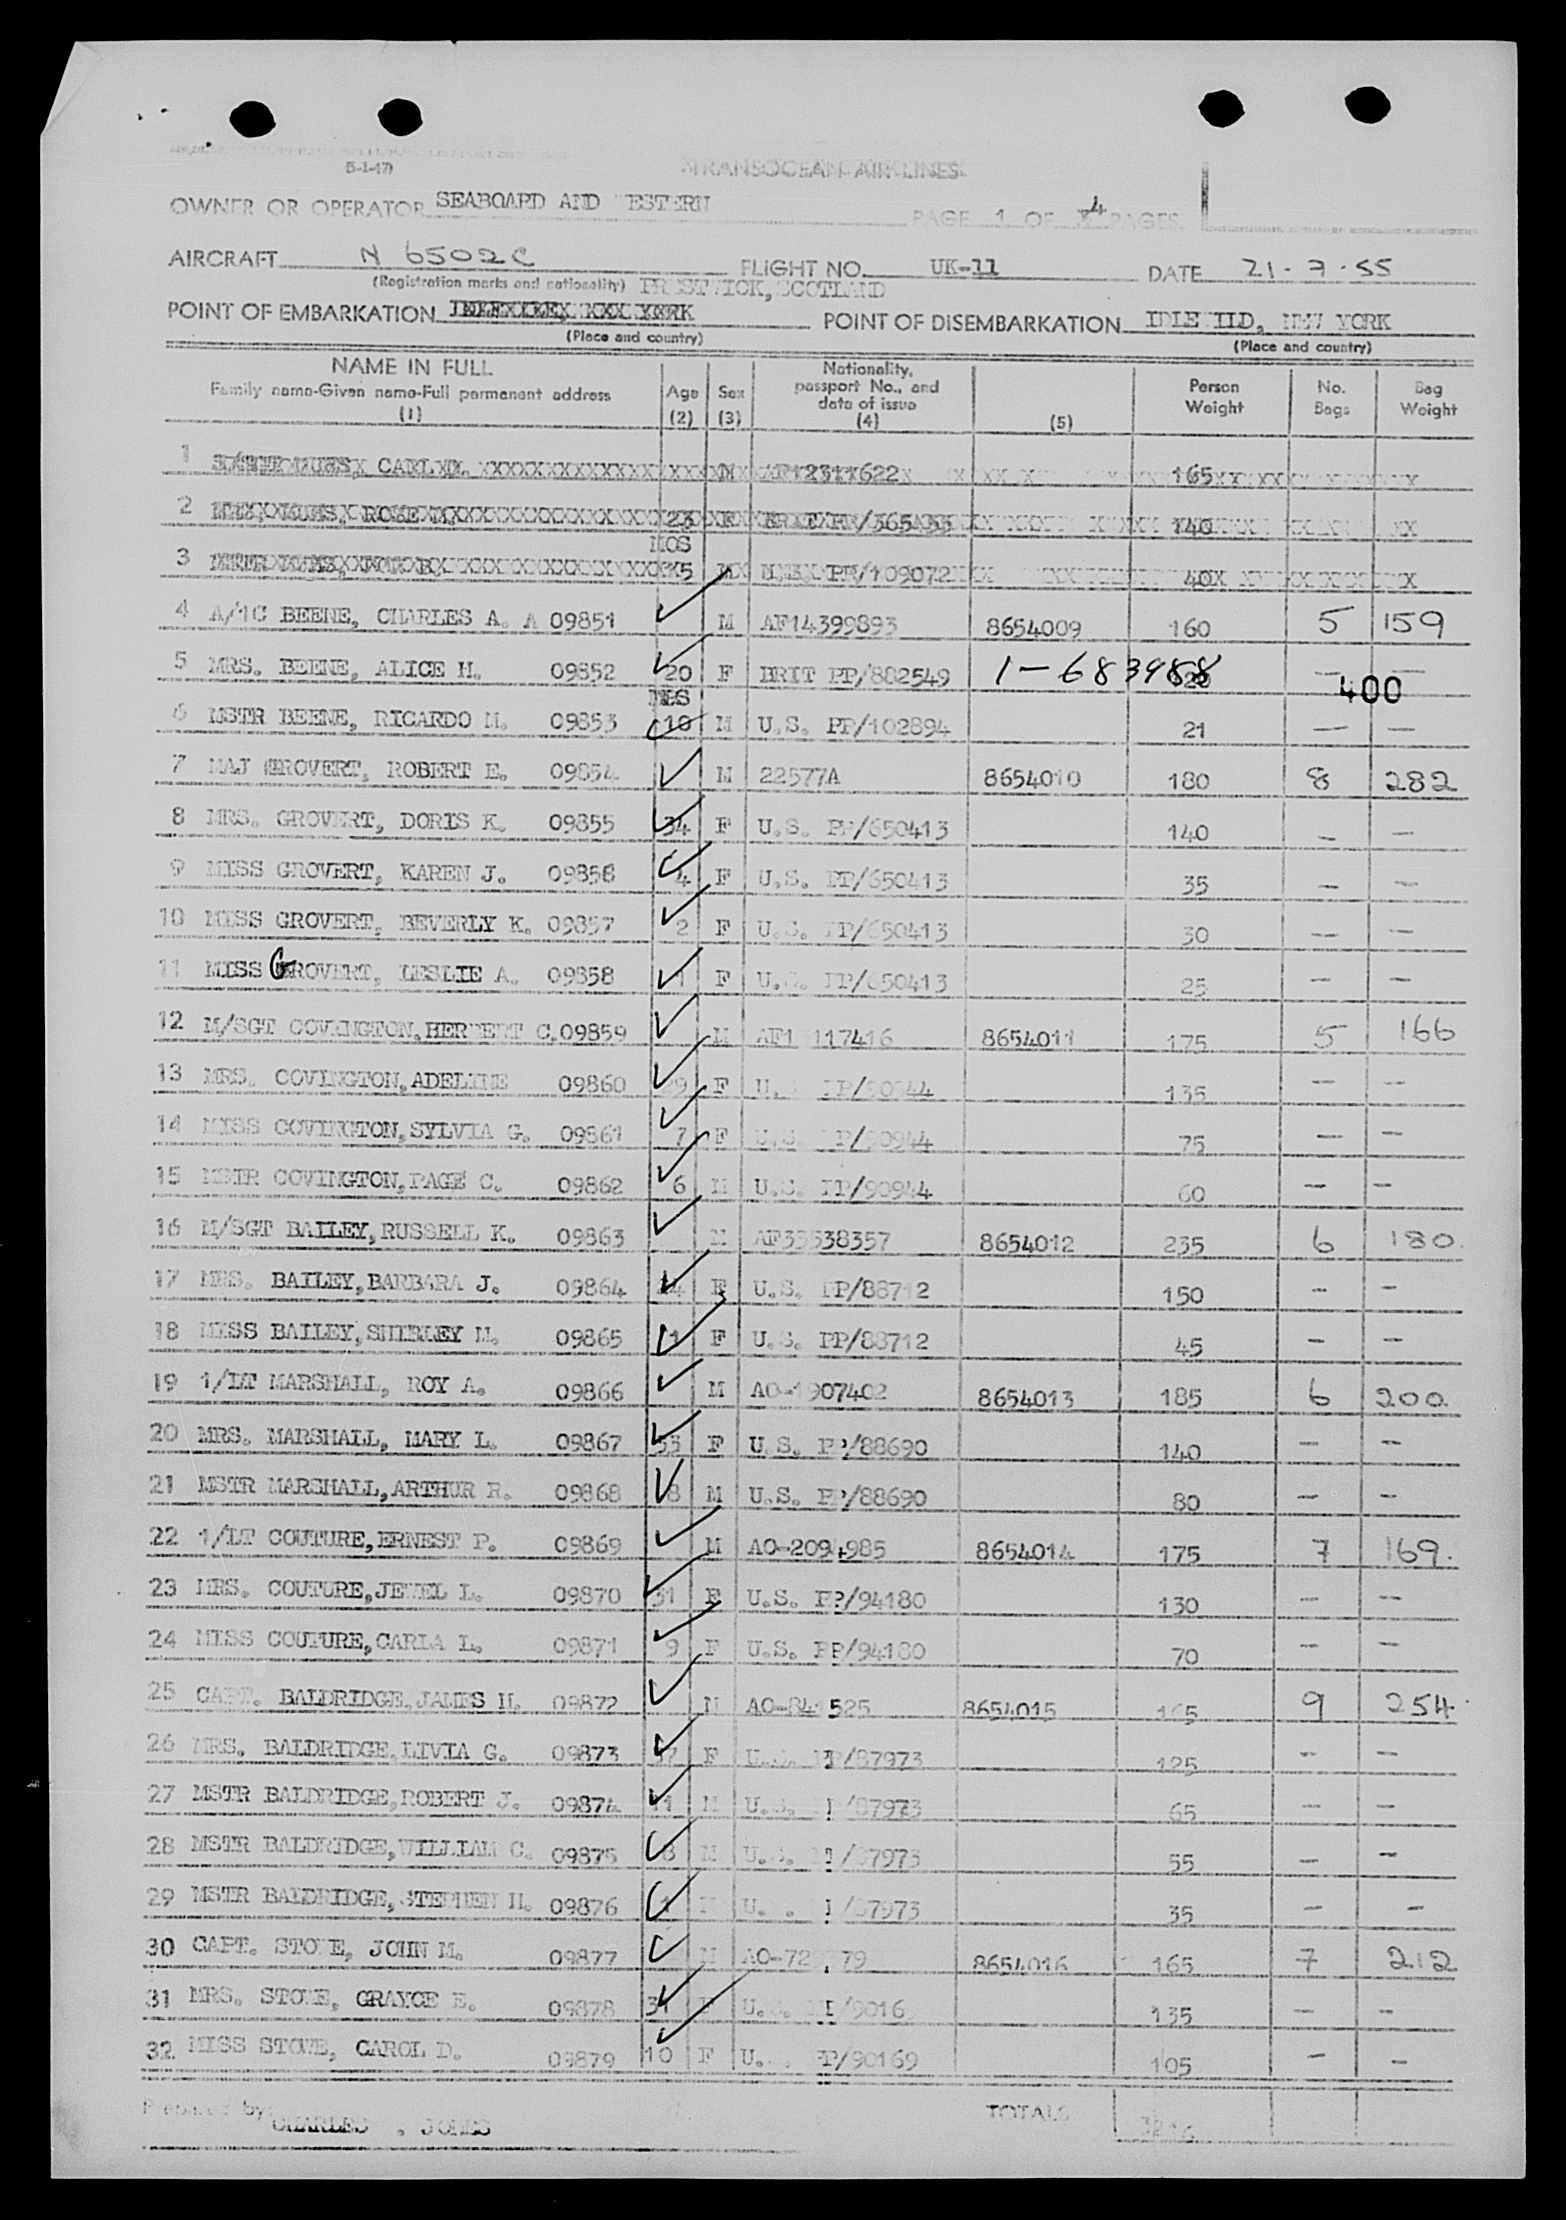 (5-1-47)
TRANSOCEAN AIR LINES
OWNER OR OPERATOR SEABOARD AND WESTERN PAGE 1 OF 4 PAGES
AIRCRAFT N 6502C FLIGHT NO. UK-11 DATE 21-7-55
(Registration marks and nationality) PRESTWICK, SCOTLAND
POINT OF EMBARKATION POINT OF DISEMBARKATION IDLEWILD, NEW YORK
(Place and country) (Place and country)
NAME IN FULL
Family name-Given name-Full permanent address
(1)
Age (2)
Sex (3)
Nationality, passport No., and date of issue (4)
(5)
Person Weight
No. Bags
Bag Weight
1 CARL M AF12311622 165
2 ROSE M. 23 F BRIT PP/365 140
MOS
3 5 M PP/109072 40
4 A/1C BEENE, CHARLES A. A 09851 M AF14399893 8654009 160 5 159
5 MRS. BEENE, ALICE H. 09852 20 F BRIT PP/882549 1-683988 — 400
MOS
6 MSTR BEENE, RICARDO M. 09853 10 M U.S. PP/102894 21 — —
7 MAJ GROVERT, ROBERT E. 09854 M 22577A 8654010 180 8 282
8 MRS. GROVERT, DORIS K. 09855 34 F U.S. PP/650413 140 — —
9 MISS GROVERT, KAREN J. 09856 4 F U.S. PP/650413 35 — —
10 MISS GROVERT, BEVERLY K. 09857 2 F U.S. PP/650413 30 — —
11 MISS GROVERT, LESLIE A. 09858 1 F U.S. PP/650413 25 — —
12 M/SGT COVINGTON,HERBERT C.09859 M 8654011 175 5 166
13 MRS. COVINGTON,ADELINE 09860 F U.S. PP/90944 135 — —
14 MISS COVINGTON,SYLVIA G. 09861 7 F U.S. PP/90944 75 — —
15 MSTR COVINGTON,PAGE C. 09862 6 M U.S. PP/90944 60 — —
16 M/SGT BAILEY,RUSSELL K. 09863 M AF33538357 8654012 235 6 180.
17 MRS. BAILEY,BARBARA J. 09864 F U.S. PP/88712 150 — —
18 MISS BAILEY,SHIRLEY M. 09865 F U.S. PP/88712 45 — —
19 1/LT MARSHALL, ROY A. 09866 M AO-1907402 8654013 185 6 200.
20 MRS. MARSHALL, MARY L. 09867 33 F U.S. PP/88690 140 — —
21 MSTR MARSHALL,ARTHUR R. 09868 8 M U.S. PP/88690 80 — —
22 1/LT COUTURE,ERNEST P. 09869 M AO-2094985 8654014 175 7 169.
23 MRS. COUTURE,JEWEL L. 09870 31 F U.S. PP/94180 130 — —
24 MISS COUTURE,CARLA L. 09871 9 F U.S. PP/94180 70 — —
25 CAPT. BALDRIDGE,JAMES H. 09872 M AO-841525 8654015 165 9 254.
26 MRS. BALDRIDGE,LIVIA G. 09873 F U.S. PP/87973 125 — —
27 MSTR BALDRIDGE,ROBERT J. 09874 11 M U.S. PP/87973 65 — —
28 MSTR BALDRIDGE,WILLIAM C. 09875 8 M U.S. PP/87973 55 — —
29 MSTR BALDRIDGE,STEPHEN H. 09876 M U.S. PP/87973 35 — —
30 CAPT. STOWE, JOHN M. 09877 M 8654016 165 7 212
31 MRS. STOWE, GRAYCE E. 09878 31 F U.S. PP/9016 135 — —
32 MISS STOWE, CAROL D. 09879 10 F U.S. PP/90169 105 — —
Prepared by: CHARLES . JONES TOTALS